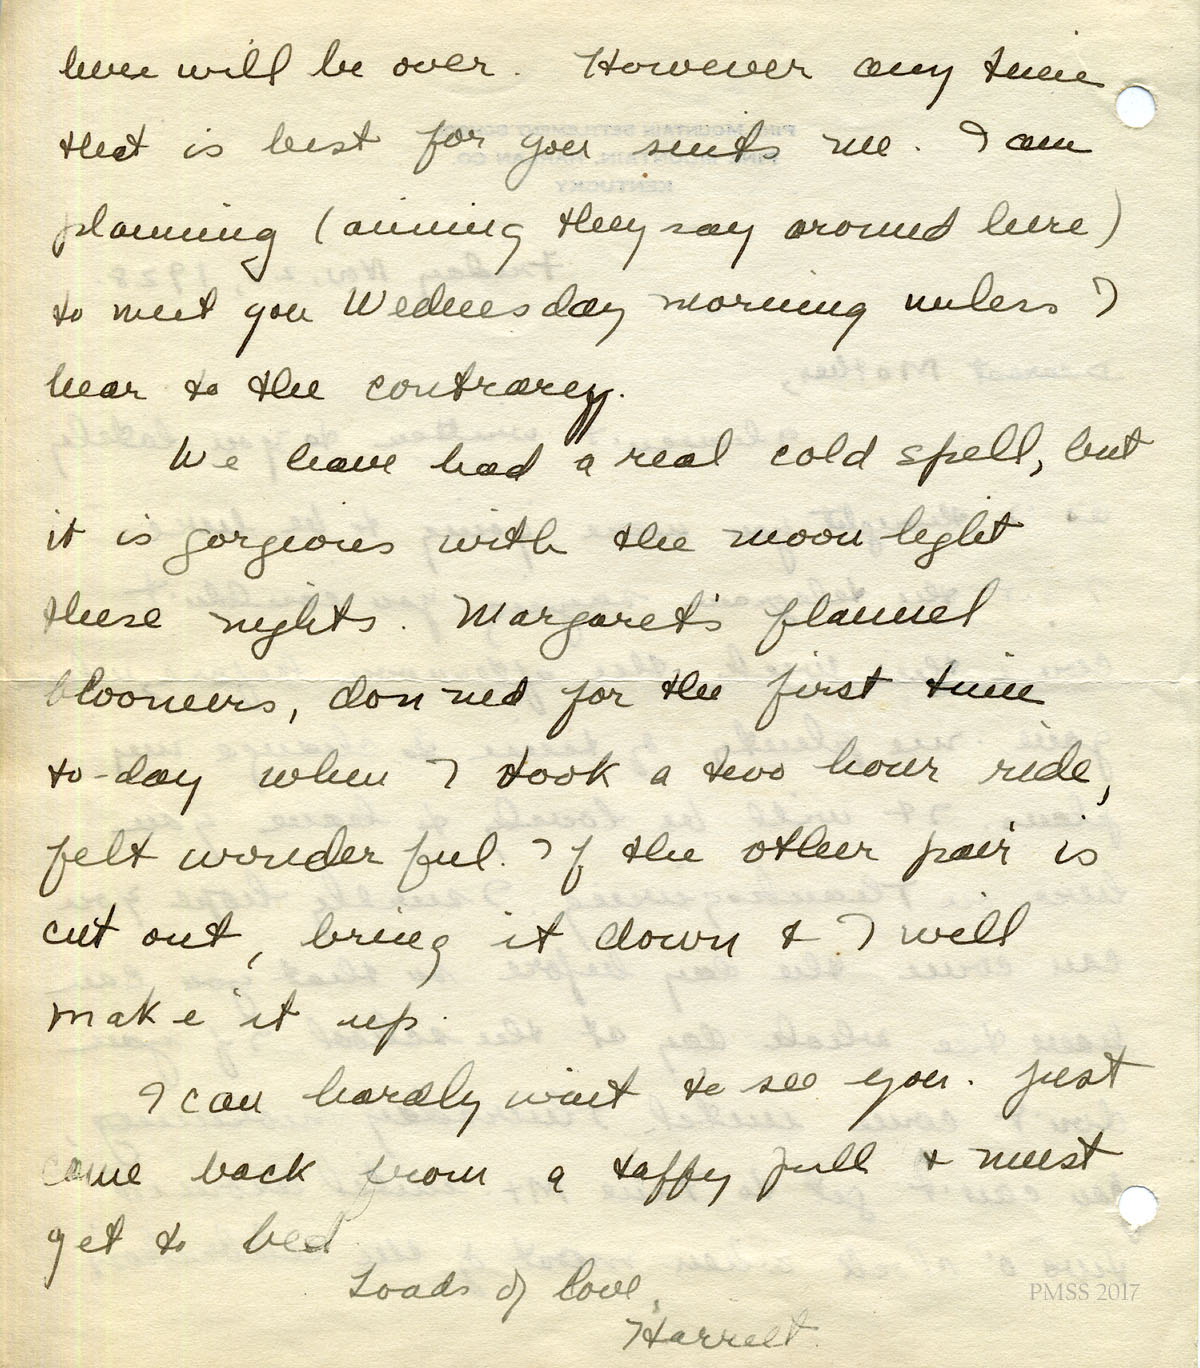 here will be over. However any time
that is best for you suits me. I am
planning (aiming they say around here)
to meet you Wednesday morning unless I
hear to the contrary.
We have had a real cold spell, but
it is gorgeous with the moon light
these nights. Margaret's flannel
bloomers, donned for the first time
to-day when I took a two hour ride,
felt wonderful. If the other pair is
cut out, bring it down & I will
make it up.
I can hardly wait to see you. Just
came back from a taffy pull & must
get to bed
Loads of love,
Harriet.
PMSS 2017